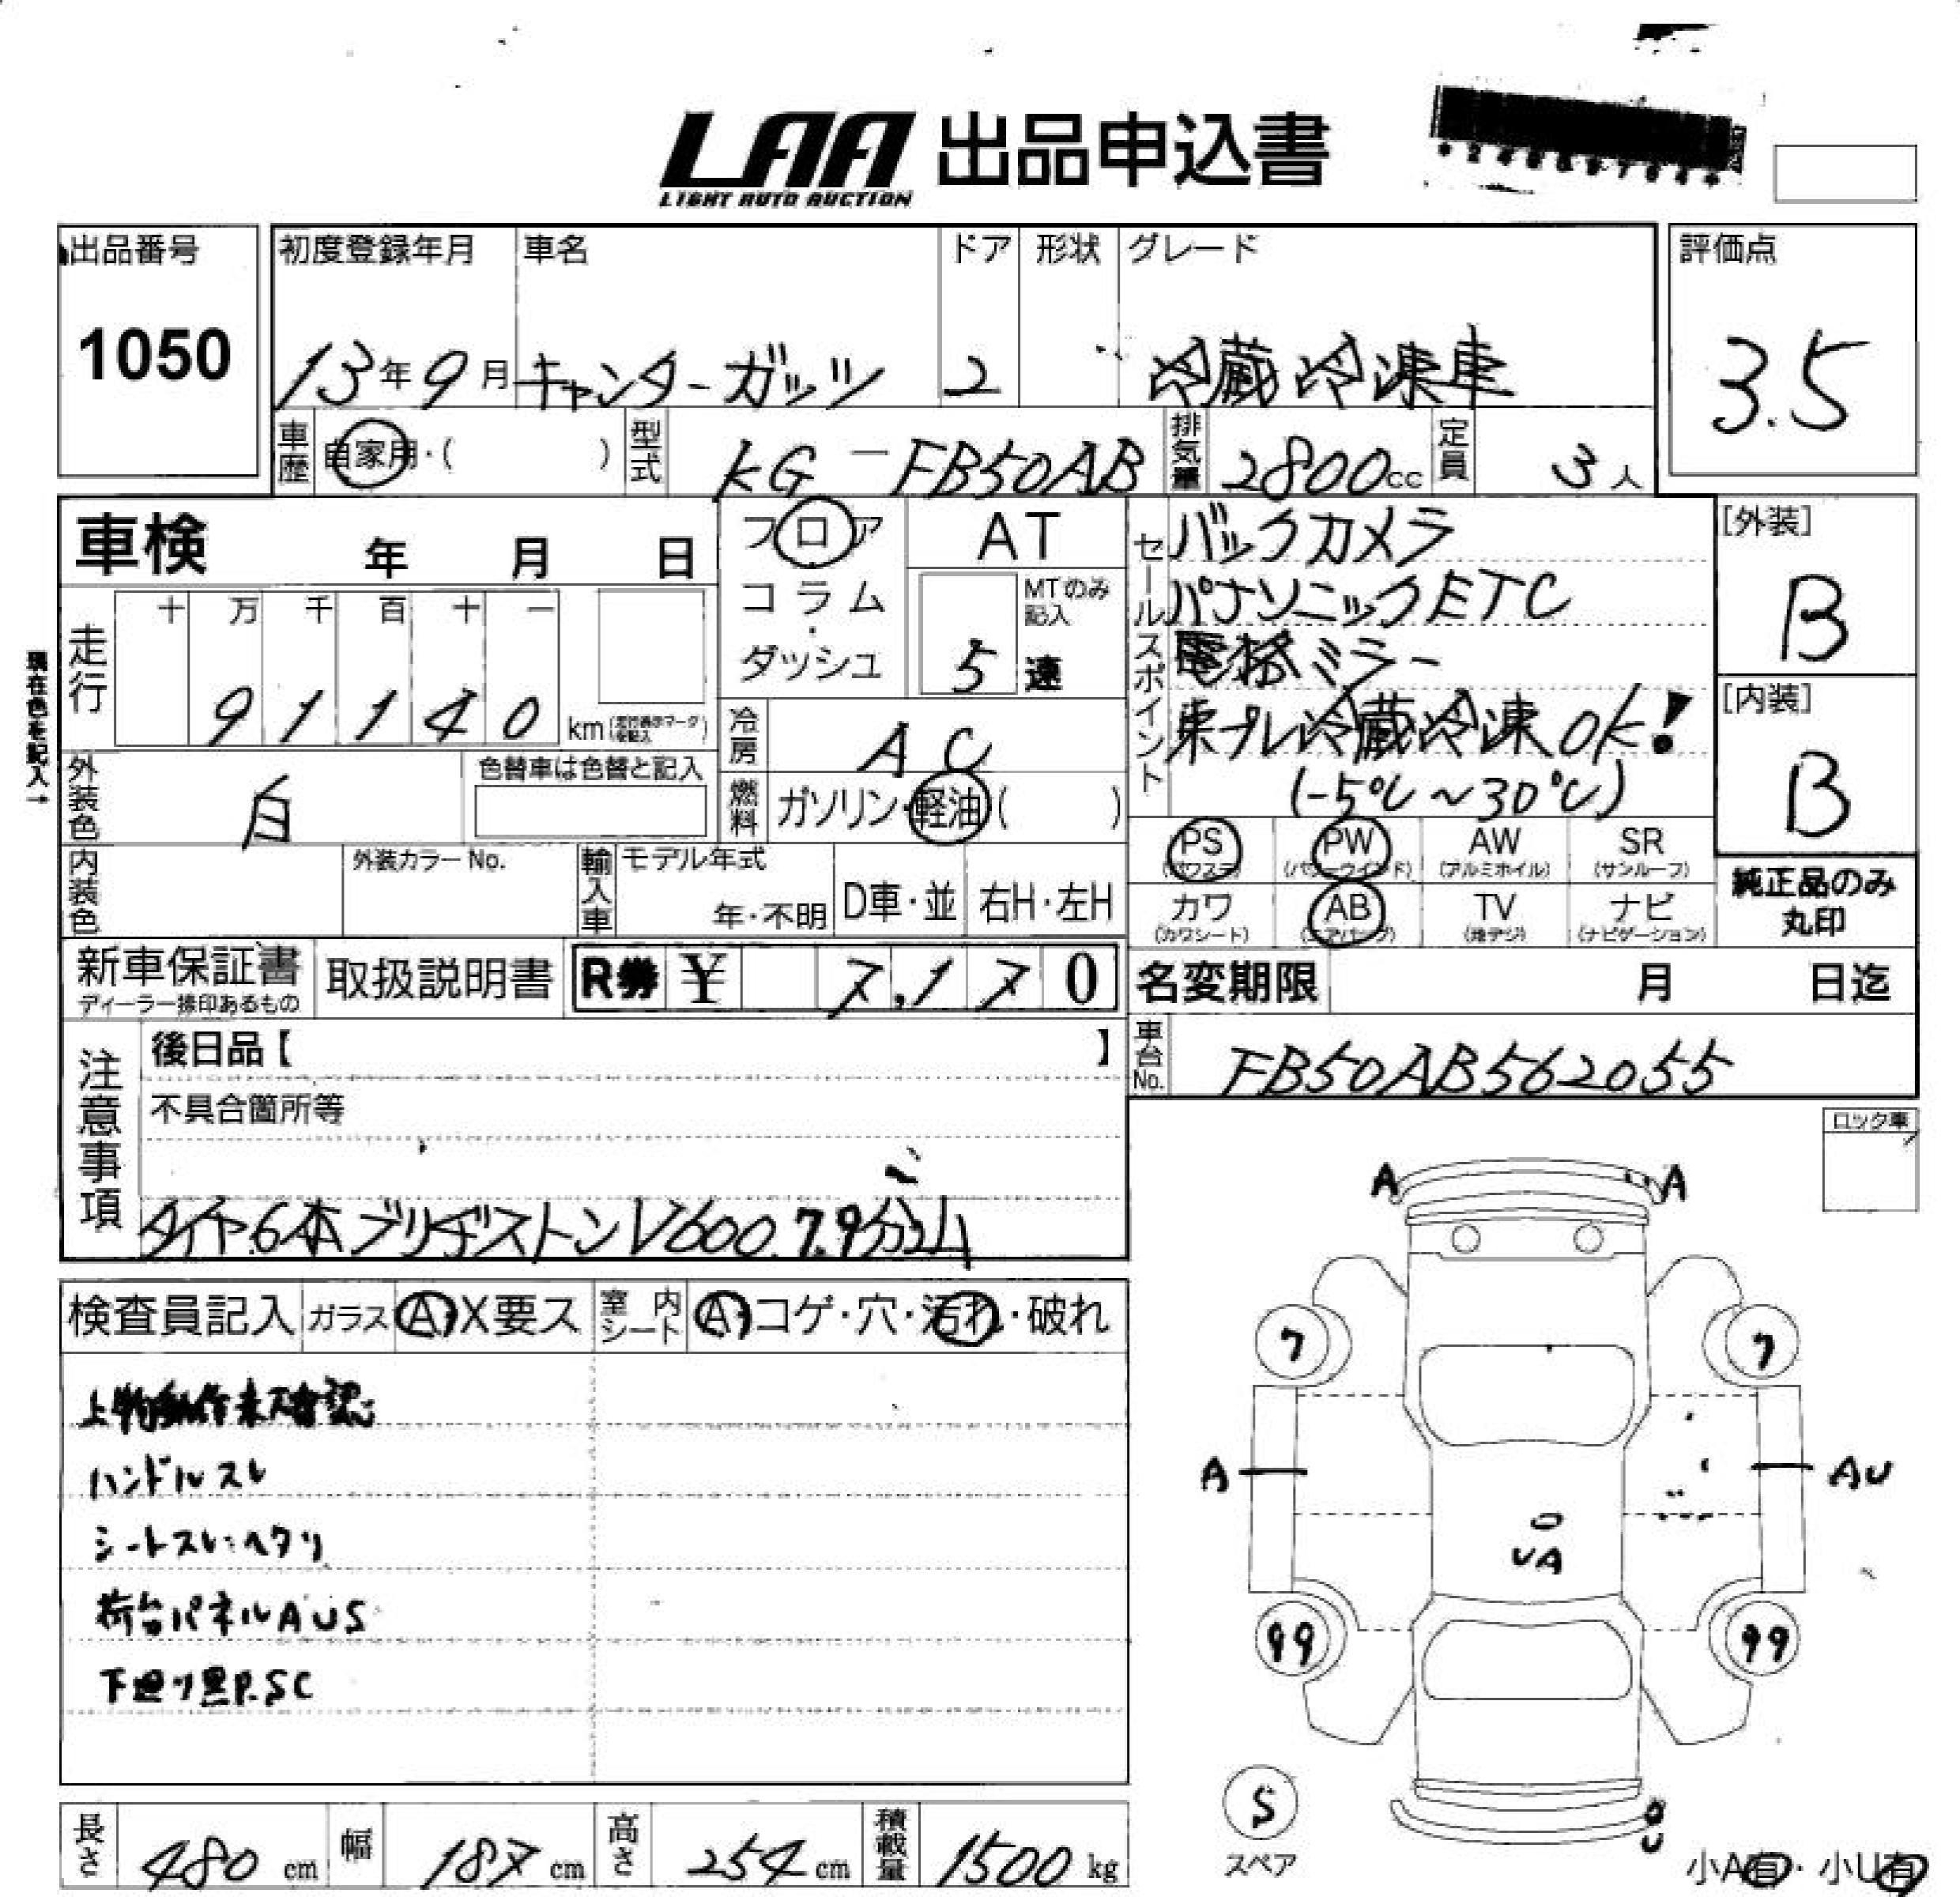 LAA 出品申込書
LIGHT AUTO AUCTION
出品番号
1050
初度登録年月
13年9月
車名
キャンターガッツ
ドア
2
形状
グレード
冷蔵冷凍車
評価点
3.5
車歴 自家用・( )
型式 KG-FB50AB
排気量 2800cc
定員 3人
車検 年 月 日
フロア
コラム・ダッシュ
AT
MTのみ記入
5速
セールスポイント
バックカメラ
パナソニックETC
電格ミラー
東プレ冷蔵冷凍OK!
(-5℃~30℃)
[外装]
B
[内装]
B
現在色を記入→
走行
十 万 千 百 十 一
9 1 1 4 0 km
冷房 AC
燃料 ガソリン・軽油( )
外装色 白
色替車は色替と記入
内装色
外装カラーNo.
輸入車 モデル年式
年・不明 D車・並 右H・左H
PS (パワステ) PW (パワーウインド) AW (アルミホイル) SR (サンルーフ)
カワ (カワシート) AB (エアバッグ) TV (地デジ) ナビ (ナビゲーション)
純正品のみ
丸印
新車保証書
ディーラー捺印あるもの
取扱説明書
R券 ¥ 7,170
名変期限 月 日迄
車台No. FB50AB562055
注意事項
後日品【 】
不具合箇所等
タイヤ6本ブリヂストンV600.7.9分山
ロック車
検査員記入 ガラス A・X要ス 室内シート A・コゲ・穴・汚れ・破れ
上物動作未確認
ハンドルスレ
シートスレ・ヘタリ
荷台パネルAUS
下廻り黒P.SC
A A
7 7
A AU
UA
99 99
S
スペア
U
小A有・小U有
長さ 480 cm
幅 187 cm
高さ 254 cm
積載量 1500 kg